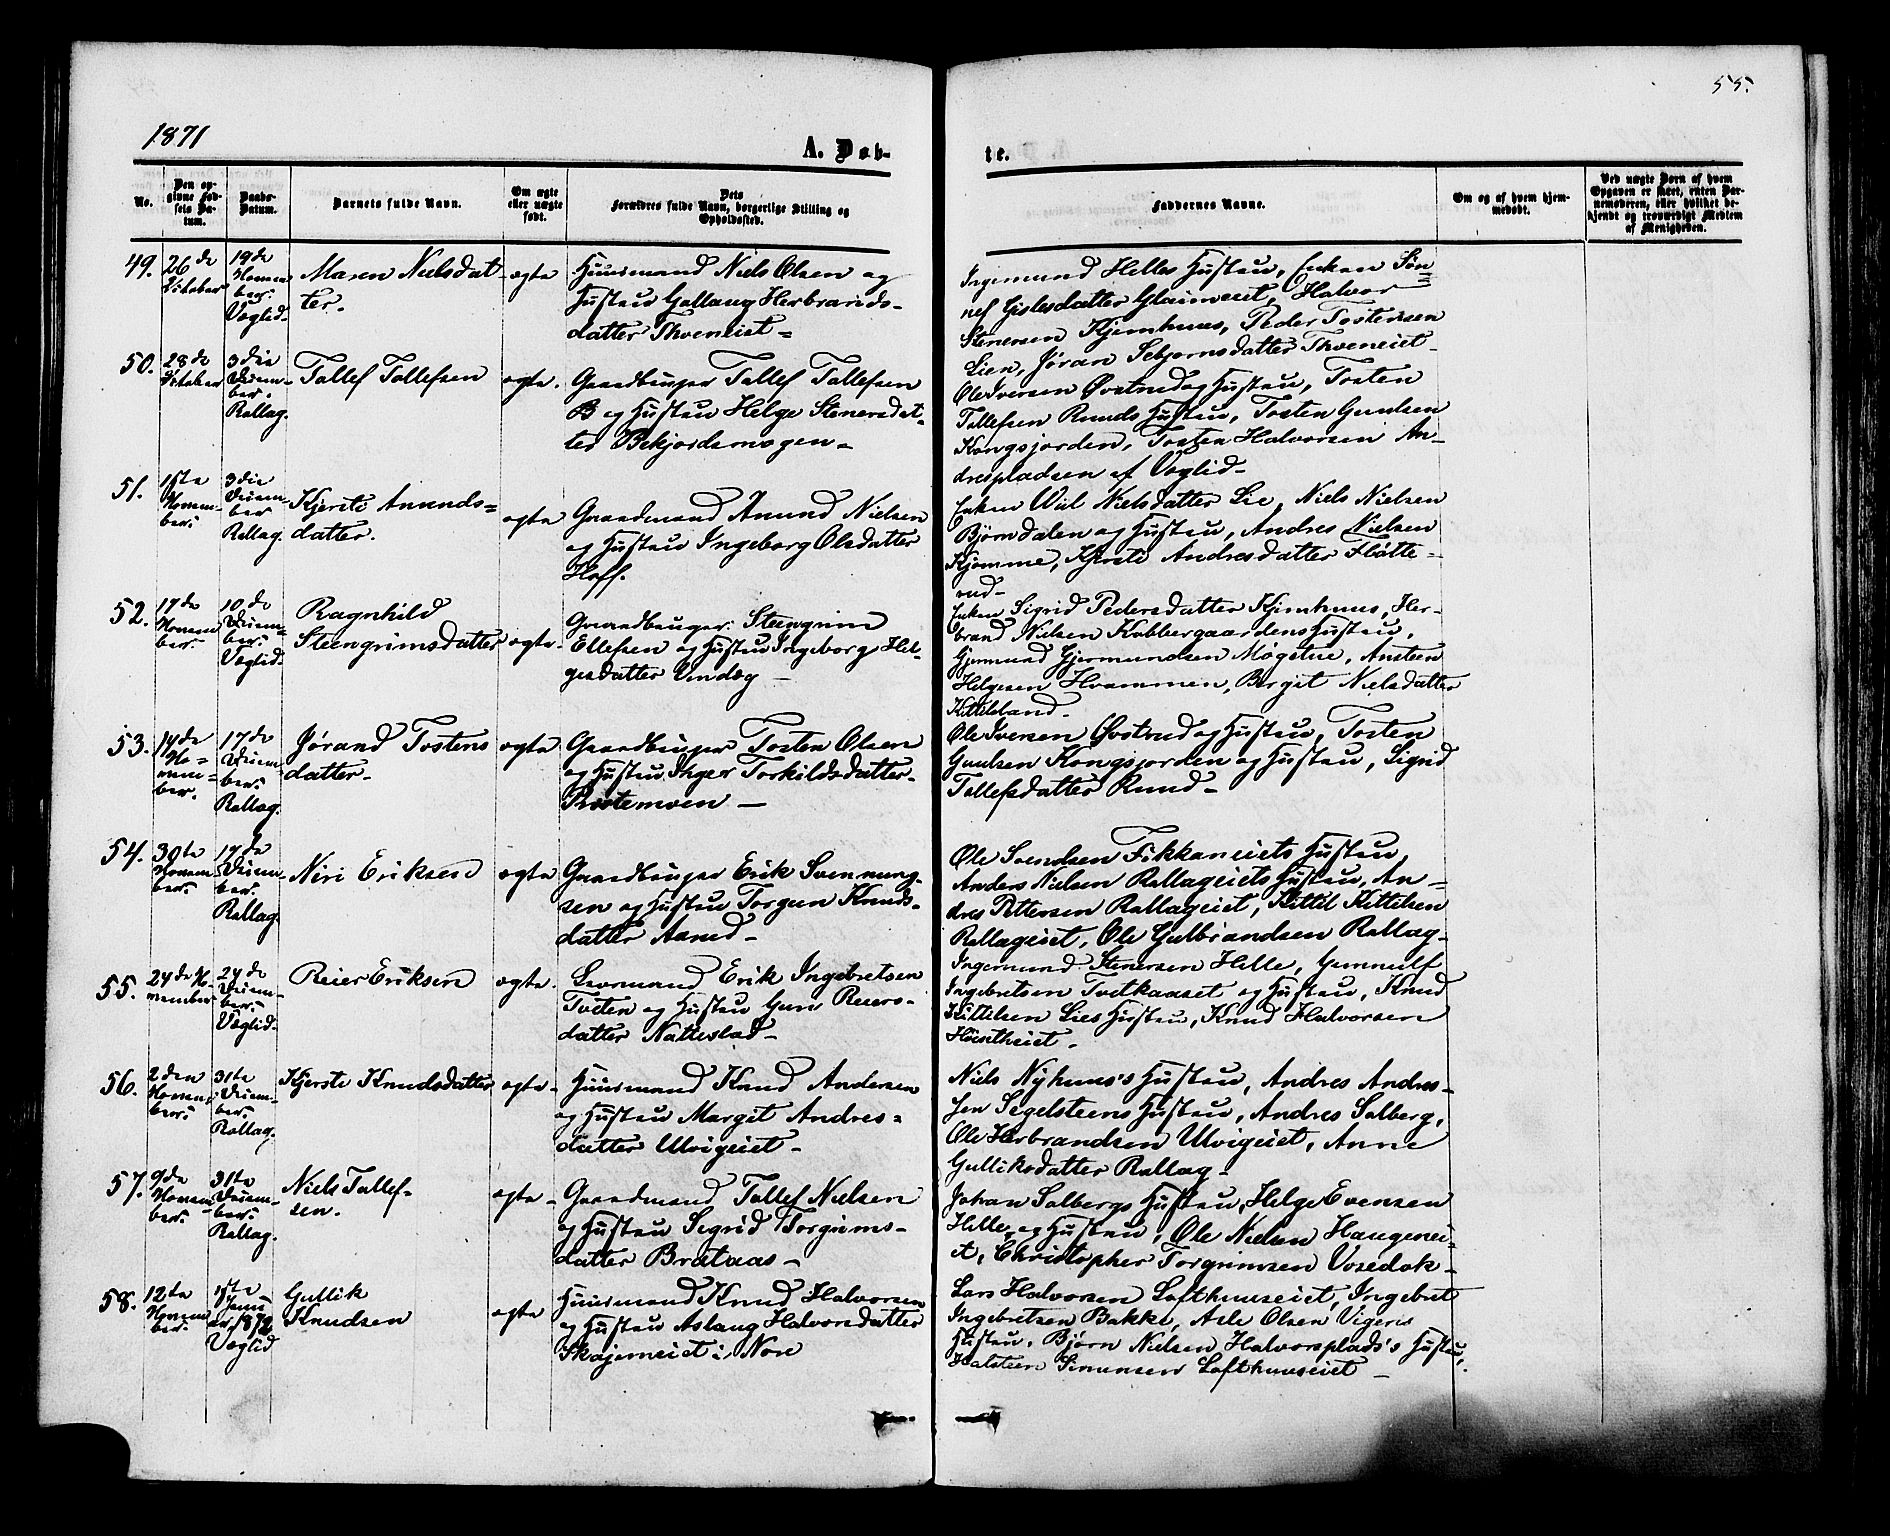 55.
1871
A. Døb-
te.
No.
Den op-
givne Fød-
sels Da-
tum.
Daabs-
Datum.
Barnets fulde Navn.
Om ægte
eller uægte
født.
Dets
Forældres fulde Navn, borgerlige Stilling og
Opholdssted.
Faddernes Navne.
Om og af hvem hjem-
medøbt.
Ved uægte Børn af hvem
Opgaven er skeet, enten Bar-
nemoderen, eller hvilket be-
kjendt og troværdigt Medlem
af Menigheden.
49.
26de
October
19de
Novem
ber.
Væglid.
Maren Nielsdat
ter.
ægte
Huusmand Niels Olsen og
Hustru Gollaug Herbrands-
datter Thveneiet-
Ingemund Helles Hustru, Enken Søn
nef Gislesdatter Glaimeiet, Halvor
Stenersen Kjemhuus, Peder Tostensen
Lien, Jøran Sebjørnsdatter Thveneiet-
50.
28de
October
3die
Decem-
ber.
Rollag.
Tollef Tollefsen
ægte.
Gaardbruger Tollef Tollefsen
B og Hustru Helge Stenersdat-
ter Bekjordsmogen-
Ole Iversen Øvstrud og Hustru, Tosten
Tollefsen Ruuds Hustru, Tosten Guulsen
Kongsjorden, Tosten Halvorsen An-
drespladsen af Væglid-
51.
1ste
Novem-
ber.
3die
Decem-
ber
Rollag.
Kjersti Amunds-
datter.
ægte
Gaardmand Amund Nielsen
og Hustru Ingeborg Olsdatter
Hoff.
Enken Wiil Nielsdatter Lie, Niels Nielsen
Bjørndalen og Hustru, Andres Nielsen
Kjomme, Kjersti Andresdatter Flötte-
rud-
52.
17de
Novem
ber.
10de
Decem-
ber.
Væglid.
Ragnhild
Steengrimsdatter
ægte
Gaardbruger. Steengrim
Ellefsen og Hustru Ingeborg Hel-
gesdatter Vindeg-
Enken Sigrid Pedersdatter Kjemhuus, Her-
brand Nielsen Kobbergaardens Hustru,
Gjermund Gjermundsen Møgstue, Ansteen
Helgesen Hvammen, Birgit Nielsdatter
Kittilsland.
53.
14de
No-
vem-
ber.
17de
Decem-
ber.
Rollag.
Jørand Tostens
datter-
ægte
Gaardbruger Tosten Olsen
og Hustru Inger Torkildsdatter-
Prestemoen-
Ole Iversen Øvstrud og Hustru, Tosten
Guulsen Kongsjorden og Hustru, Sigrid
Tollefsdatter Ruud-
54.
30te
Novem
ber.
17de
Decem-
ber.
Rollag.
Niri Eriksen
ægte
Gaardbruger Erik Svennung-
sen og Hustru Torgun Knuds-
datter Aased-
Ole Svendsen Fikkaneiets Hustru,
Anders Nielsen Rollageiets Hustru, An-
dres Pettersen Rollageiet, Kittil Kittilsen
Rollageiet, Ole Gulbrandsen Rollag-
55.
24de No-
vember
24de
Decem-
ber.
Væglid.
Reier Eriksen
ægte.
Leormand Erik Ingebretsen
Tveten og Hustru Guri Reiers-
datter Natteslad-
Ingermund Stenersen Helle, Gunnulf
Ingebretsen Tveitkaaset og Hustru, Knud
Kittilsen Lies Hustru, Knud Halvorsen
56.
2den
Novem
ber.
31te
Decem-
ber.
Rollag.
Kjersti Knudsdatter
ægte-
Huusmand Knud Andersen
og Hustru Margit Andres-
datter Ulvigeiet-
Niels Nyhuus's Hustru, Andres Andres-
sen Segelsteens Hustru, Andres Solberg,
Ole Herbrandsen Ulvigeiet, Anne
Gulliksdatter Rollag-
57.
9de
Novem-
ber.
31te
Decem-
ber.
Rollag.
Niels Tollef-
sen.
ægte-
Gaardmand Tollef Nielsen
og Hustru Sigrid Torgrims-
datter Brataas-
Johan Solbergs Hustru, Helge Evensen
Helle, og Hustru, Ole Nielsen Haugenei-
et, Christopher Torgrimsen Vosedok-
58.
12te
Novem
ber.
1ste
Janu
ar 1872
Væglid
Gullik
Knudsen
ægte
Huusmand Knud Halvorsen
og Hustru Aslaug Halvorsdatter
Skajemeiet i Nore
Lars Halvorsen Lofthuuseiet, Ingebret
Ingebretsen Bakke, Asle Olsen Vigeris
Hustru, Bjørn Nielsen Halvorsplads's Hustru,
Halsteen Simensen Lofthuuseiet-